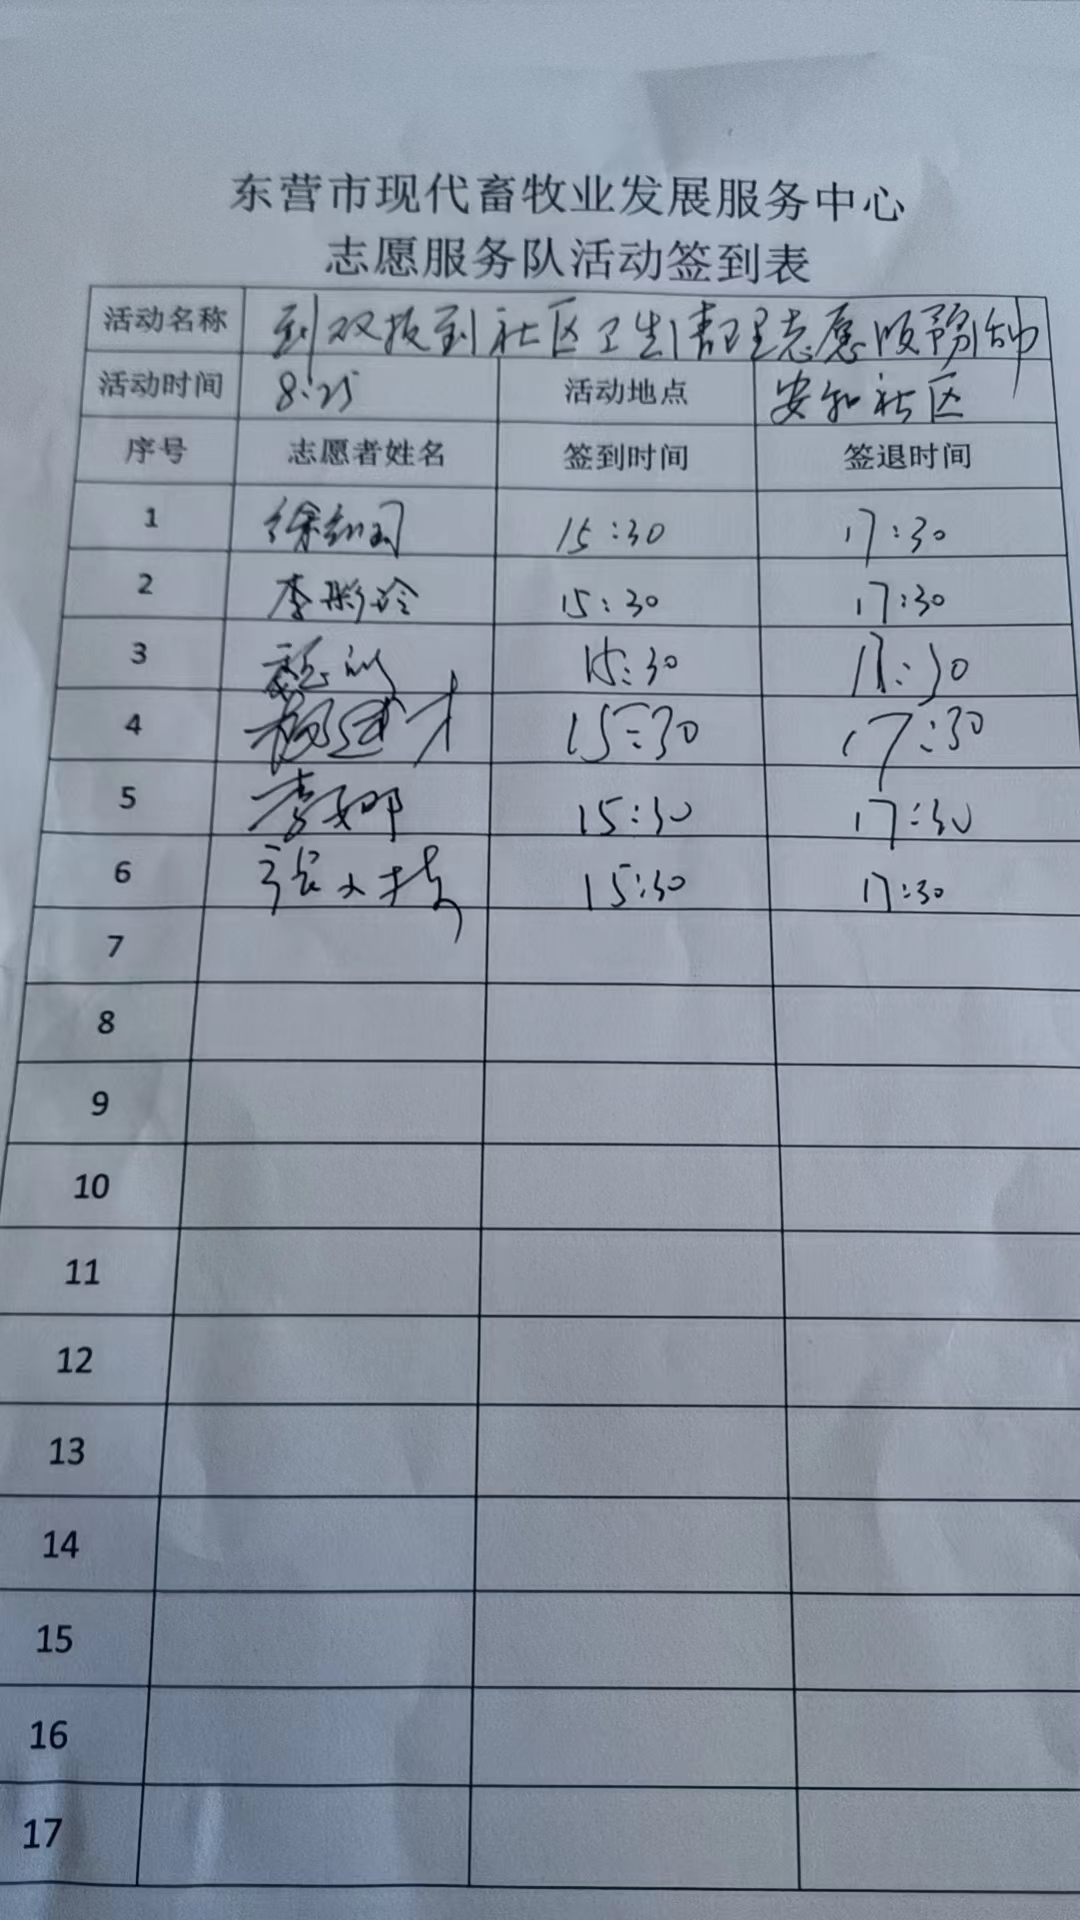 东营市现代畜牧业发展服务中心
志愿服务队活动签到表
活动名称 到双报到社区卫生清理志愿服务活动
活动时间 8.25 活动地点 安和社区
序号 志愿者姓名 签到时间 签退时间
1 徐 15:30 17:30
2 李彩玲 15:30 17:30
3 15:30 17:30
4 15:30 17:30
5 李娜 15:30 17:30
6 张 15:30 17:30
7
8
9
10
11
12
13
14
15
16
17